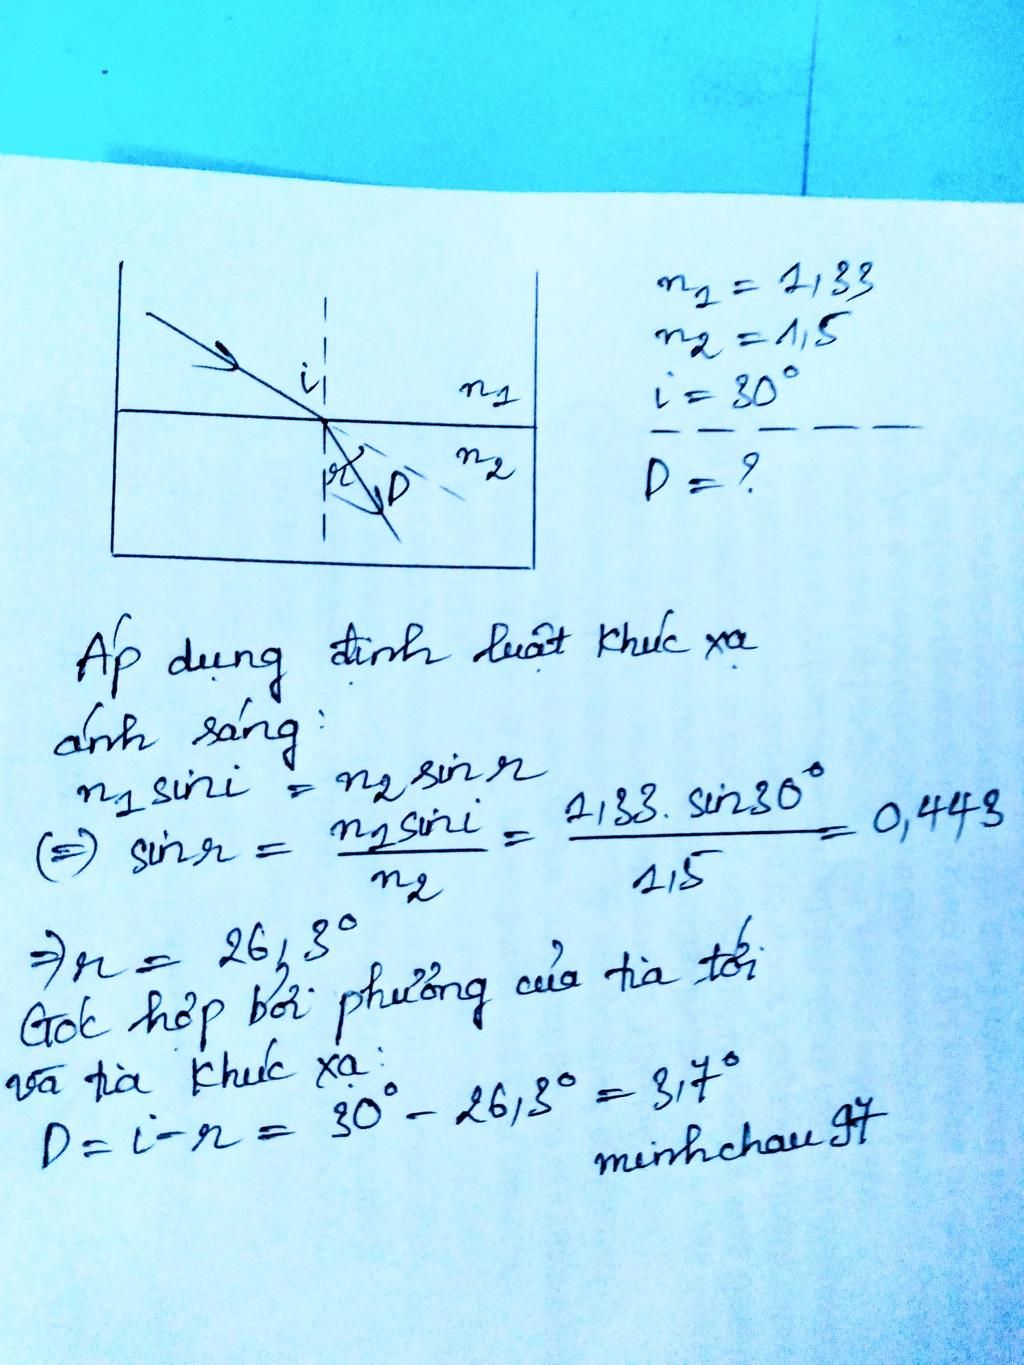 n₁ = 1,33
n₂ = 1,5
i = 30°
D = ?
i
n₁
n₂
r
D
Áp dụng định luật khúc xạ
ánh sáng:
n₁ sini = n₂ sinr
(=) sinr = n₁sini / n₂ = 1,33. sin30° / 1,5 = 0,443
=> r = 26,3°
Góc hợp bởi phương của tia tới
và tia khúc xạ:
D = i - r = 30° - 26,3° = 3,7°
minhchau 97